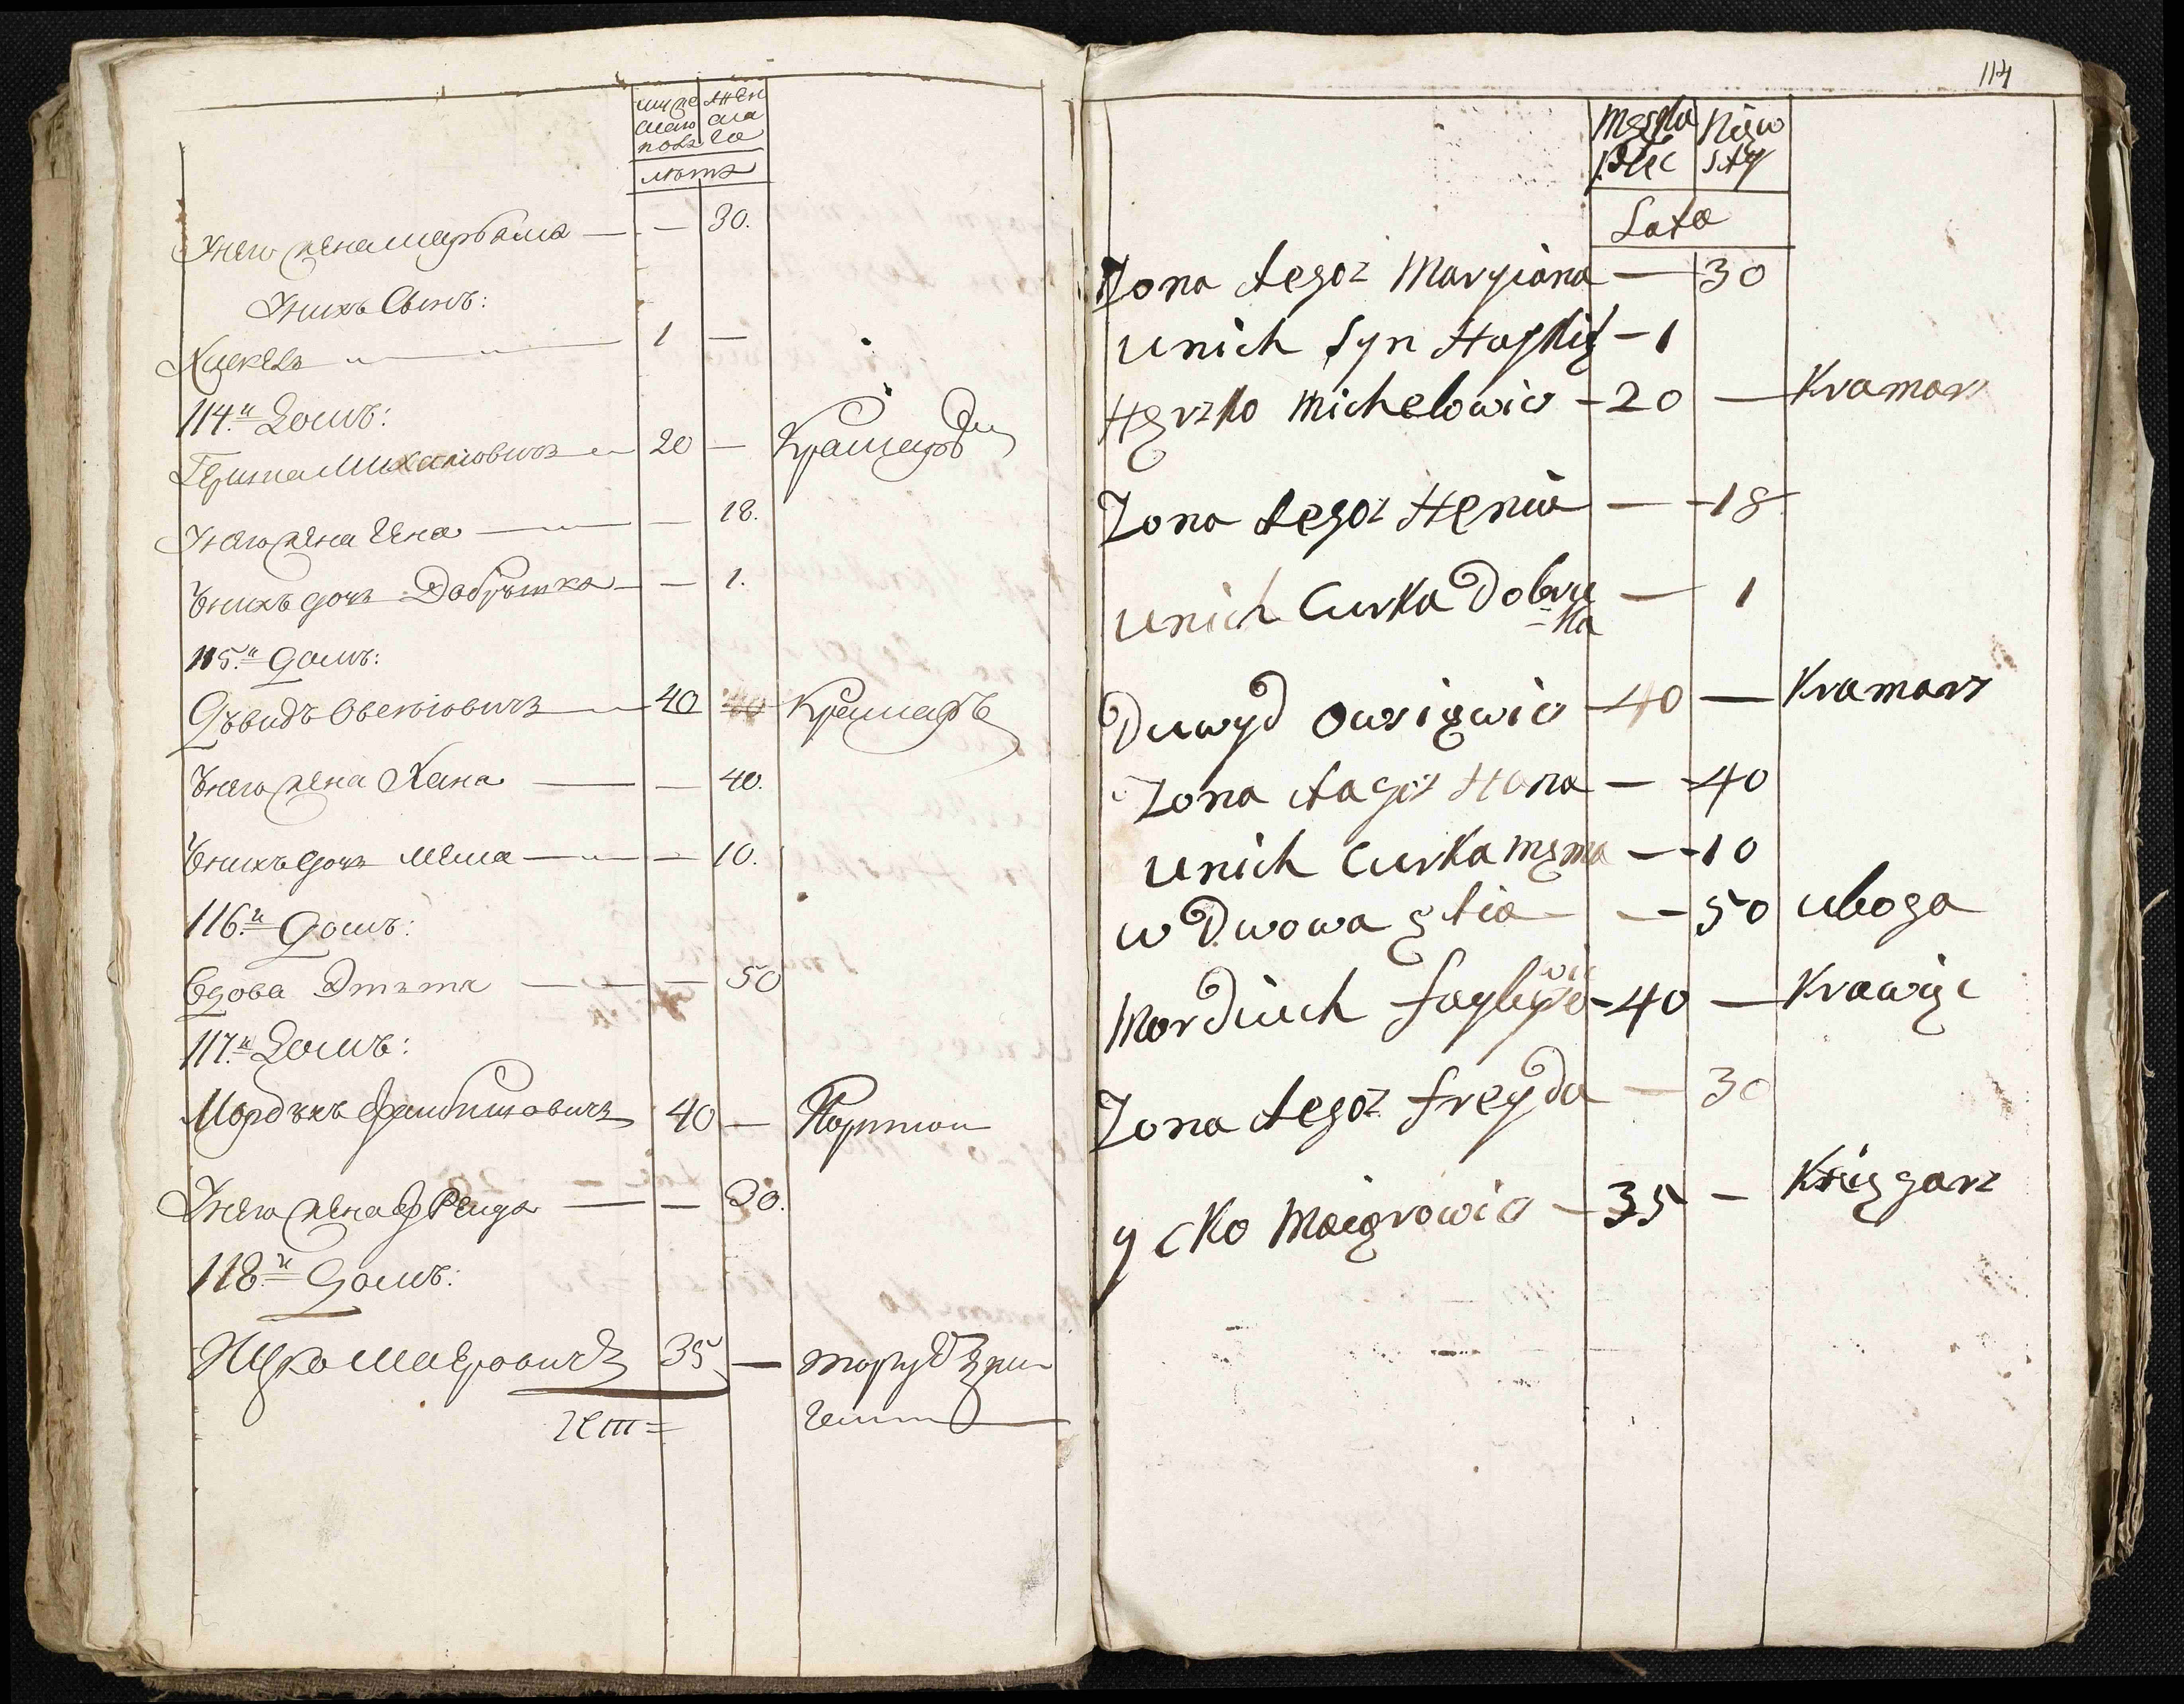 муже
ского
полъ
жен
ска
го
лѣта
Унего жена Марьяна — — 30.
Унихъ Сынъ:
Хцкель — 1 —
114.й Домъ:
Гершка Михаловичъ — 20 — Крамаръ
Унего жена Гена — — 18.
Унихъ дочь Добрушка — — 1.
115.й домъ:
Дввидъ Овсеиовичъ — 40 — Крамаръ
Унего жена Хана — — 40.
Унихъ дочь Мема — — 10.
116.й Домъ:
Вдова Этъта — — — 50
117.й Домъ:
Мордъхъ Файбишовичъ 40 — Портнои
Унего жена Фреида — — 30.
118.й Домъ:
Ицко Маеровичъ 35 — торгуетъ кни
гами
114
Męska
płec
Niew
sty
Lata
Zona tegoż Maryiana — 30
Unich Syn Haskiel — 1
Herzko Michelowicz — 20 — Kramarz
Zona tegoż Henia — — 18
Unich Curka Dobru — 1
-ka
Duwyd Owsiewicz — 40 — Kramarz
Zona tagoż Hana — — 40
Unich Curka Mema — — 10
wDwowa Etia — — 50 uboga
wic
Morduch Faybiszo — 40 — Krawiec
Zona tegoż Freyda — 30
ycko Maierowicz — 35 — Księgarz